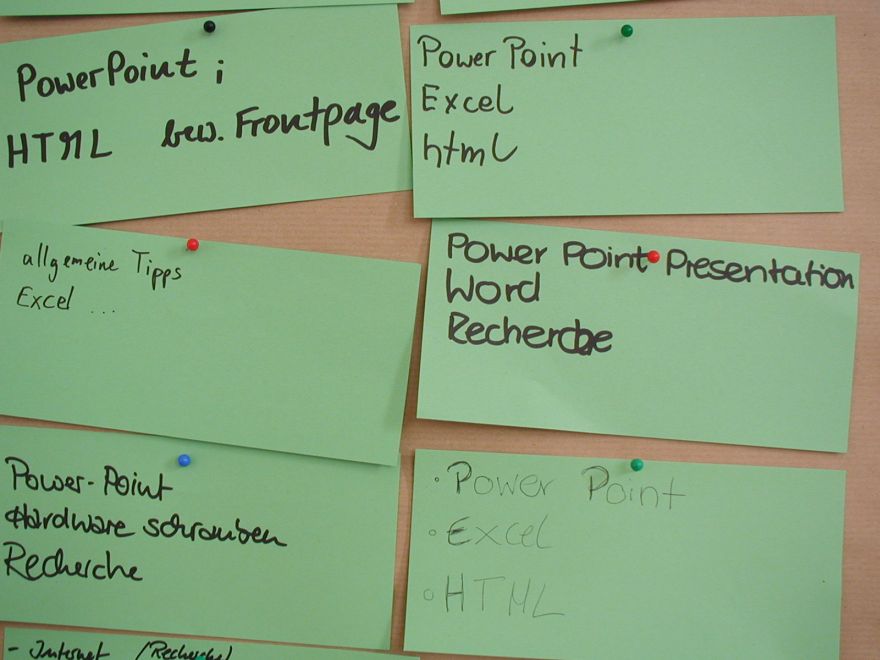 PowerPoint ;
HTML bzw. Frontpage
Power Point
Excel
html
allgemeine Tipps
Excel ...
Power Point Presentation
Word
Recherche
Power-Point
Hardware schrauben
Recherche
· Power Point
· Excel
· HTML
- Internet (Recherche)